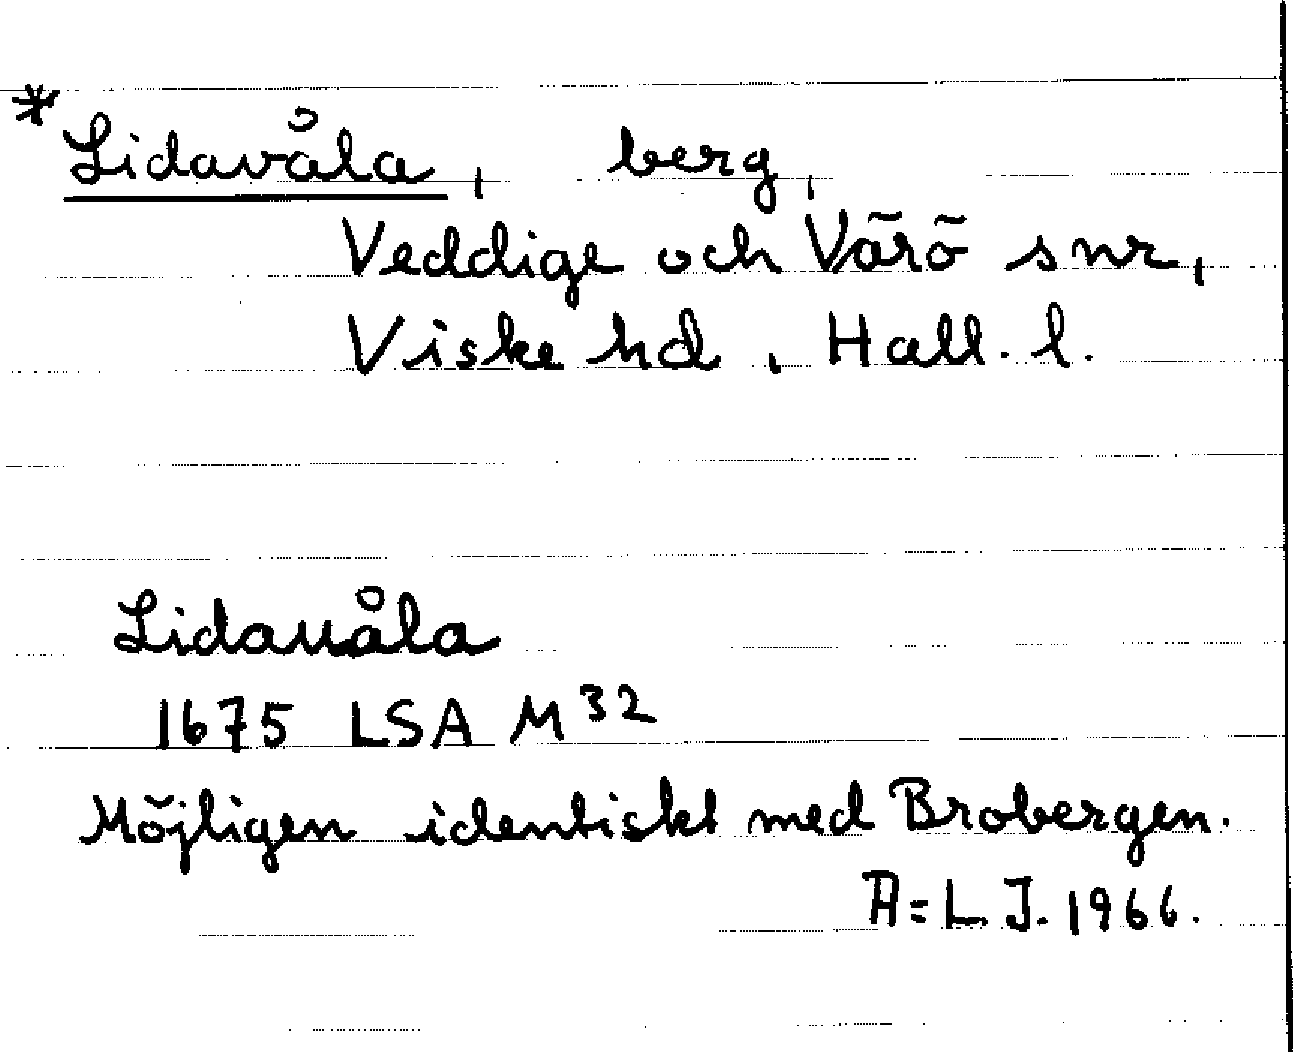 *Lidavåla, berg,
Veddige och Värö snr,
Viske hd, Hall. l.
Lidauåla
1675 LSA M32
Möjligen identiskt med Brobergen.
A-L J. 1966.